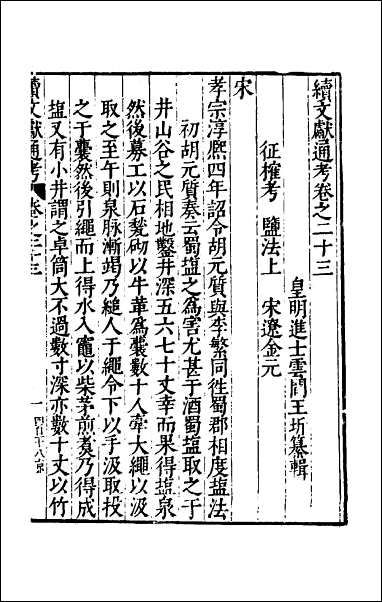 續文獻通考卷之二十三
皇明進士雲間王圻纂輯
征榷考　鹽法上　宋遼金元
宋
孝宗淳熈四年詔令胡元質與李繁同徃蜀郡相度塩法
初胡元質奏云蜀塩之為害尤甚于酒蜀塩取之于
井山谷之民相地鑿井深五六七十丈幸而果得塩泉
然後募工以石甃砌以牛革為囊數十人牽大繩以汲
取之至午則泉脉漸竭乃縋人于繩令下以手汲取投
之于囊然後引繩而上得水入竈以柴茅煎煑乃得成
塩又有小井謂之卓筒大不過數寸深亦數十丈以竹
續文獻通考　卷之二十三　一